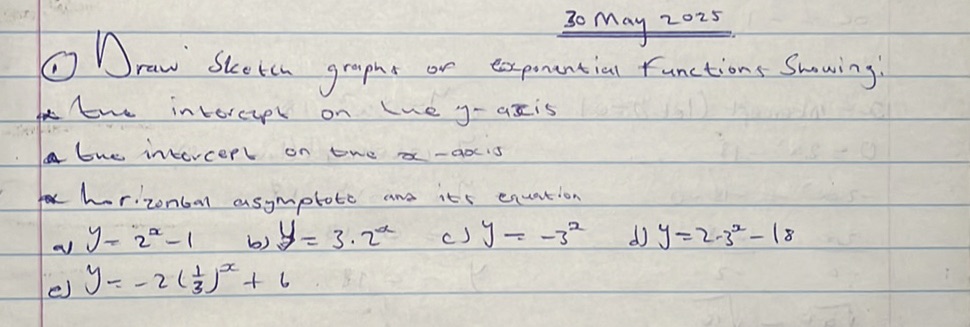 30 May 2025
① Draw Sketch graphs of exponential functions Showing:
* the intercept on the y-axis
* the intercept on the x-axis
* horizontal asymptote and its equation
a) y = 2ˣ - 1 b) y = 3·2ˣ c) y = -3ˣ d) y = 2·3ˣ - 18
e) y = -2(1/3)ˣ + 6